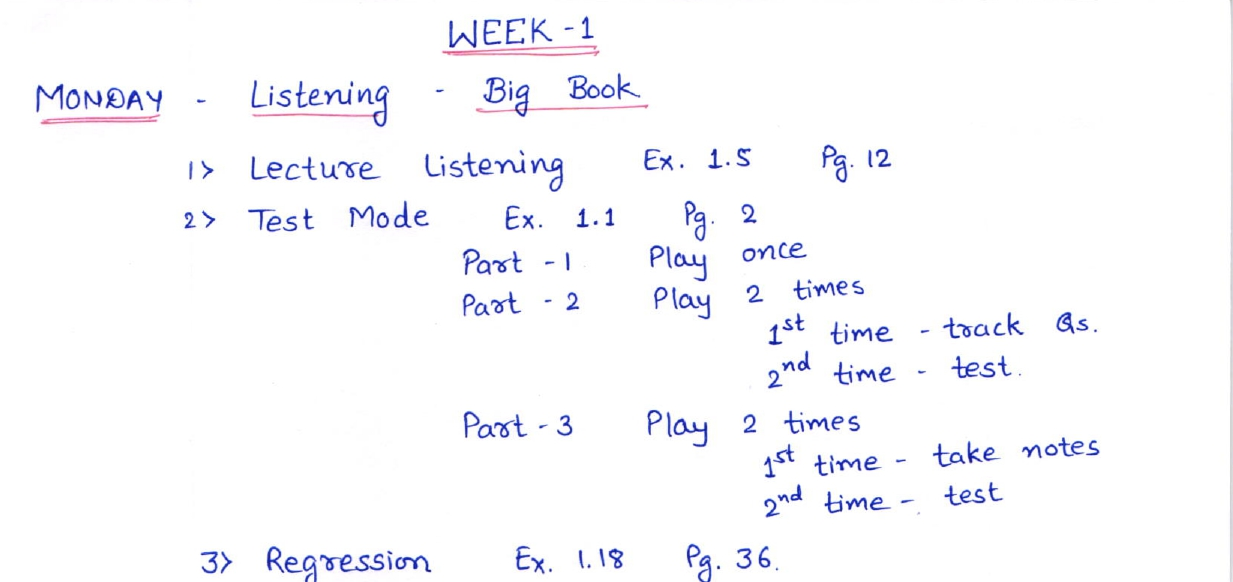 WEEK - 1
MONDAY - Listening - Big Book
1> Lecture Listening Ex. 1.5 Pg. 12
2> Test Mode Ex. 1.1 Pg. 2
Part - 1 Play once
Part - 2 Play 2 times
1st time - track Qs.
2nd time - test.
Part - 3 Play 2 times
1st time - take notes
2nd time - test
3> Regression Ex. 1.18 Pg. 36.